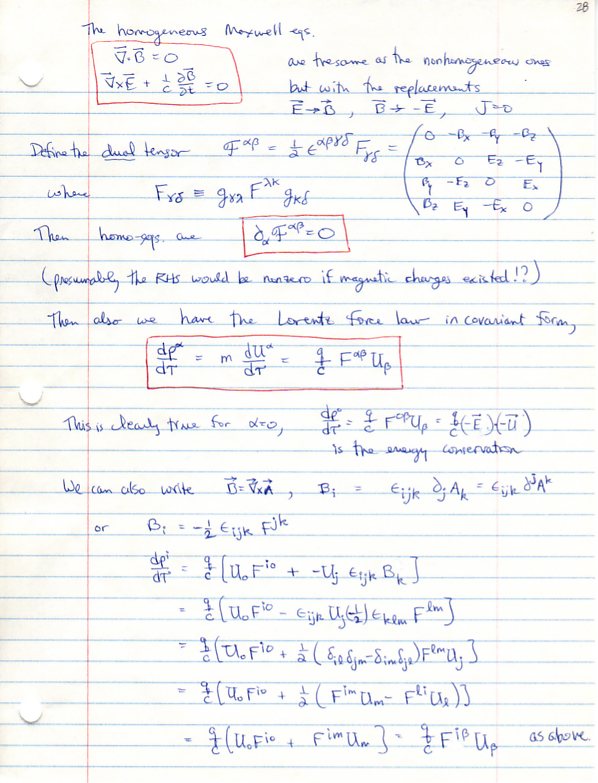 28
The homogeneous Maxwell eqs.
∇⃗·B⃗ = 0
∇⃗×E⃗ + 1/c ∂B⃗/∂t = 0
are the same as the nonhomogeneous ones
but with the replacements
E⃗→B⃗ , B⃗→-E⃗, J=0
Define the dual tensor ℱ^{αβ} = 1/2 ε^{αβγδ} F_{γδ} = ( 0 -Bx -By -Bz
Bx 0 Ez -Ey
By -Ez 0 Ex
Bz Ey -Ex 0 )
where F_{γδ} ≡ g_{γλ} F^{λκ} g_{κδ}
Then homo-eqs. are ∂_α ℱ^{αβ} = 0
(presumably the RHS would be nonzero if magnetic charges existed!?)
Then also we have the Lorentz force law in covariant form,
dp^α/dτ = m dU^α/dτ = q/c F^{αβ} U_β
This is clearly true for α=0, dp⁰/dτ = q/c F^{0β} U_β = q/c (-E⃗)·(-U⃗)
is the energy conservation
We can also write B⃗=∇⃗×A⃗ , B_i = ε_{ijk} ∂_j A_k = ε_{ijk} ∂^j A^k
or B_i = -1/2 ε_{ijk} F^{jk}
dp^i/dτ = q/c [U_0 F^{i0} + -U_j ε_{ijk} B_k]
= q/c [U_0 F^{i0} - ε_{ijk} U_j (-1/2) ε_{klm} F^{lm}]
= q/c [U_0 F^{i0} + 1/2 (δ_{il} δ_{jm} - δ_{im} δ_{jl}) F^{lm} U_j]
= q/c [U_0 F^{i0} + 1/2 (F^{im} U_m - F^{li} U_l)]
= q/c [U_0 F^{i0} + F^{im} U_m] = q/c F^{iβ} U_β as above.